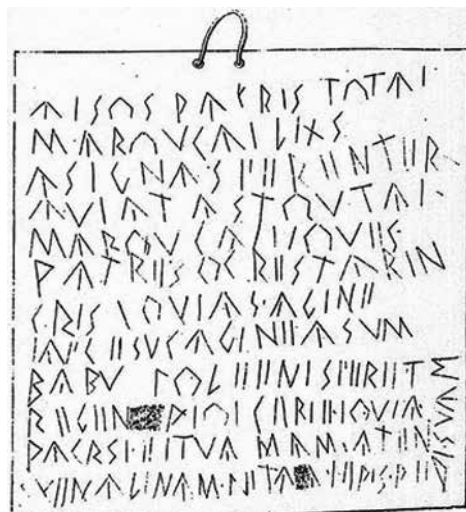 AISOS PACRIS TOTAI
MAROVCAI LIXS
ASIGNAS FERENTER
AVIATAS TOVTAI
MAROVCAI IOVES
PATRES OCRES TARIN
CRIS IOVIAS AGINE
IAFC ESVC AGINE ASVM
BABV POLEENIS FERET
REGEN PIOI CERIE IOVIA
PACRSI EITVAM AMATEN
VENALINAM NITA NIPIS PEDI SVAM